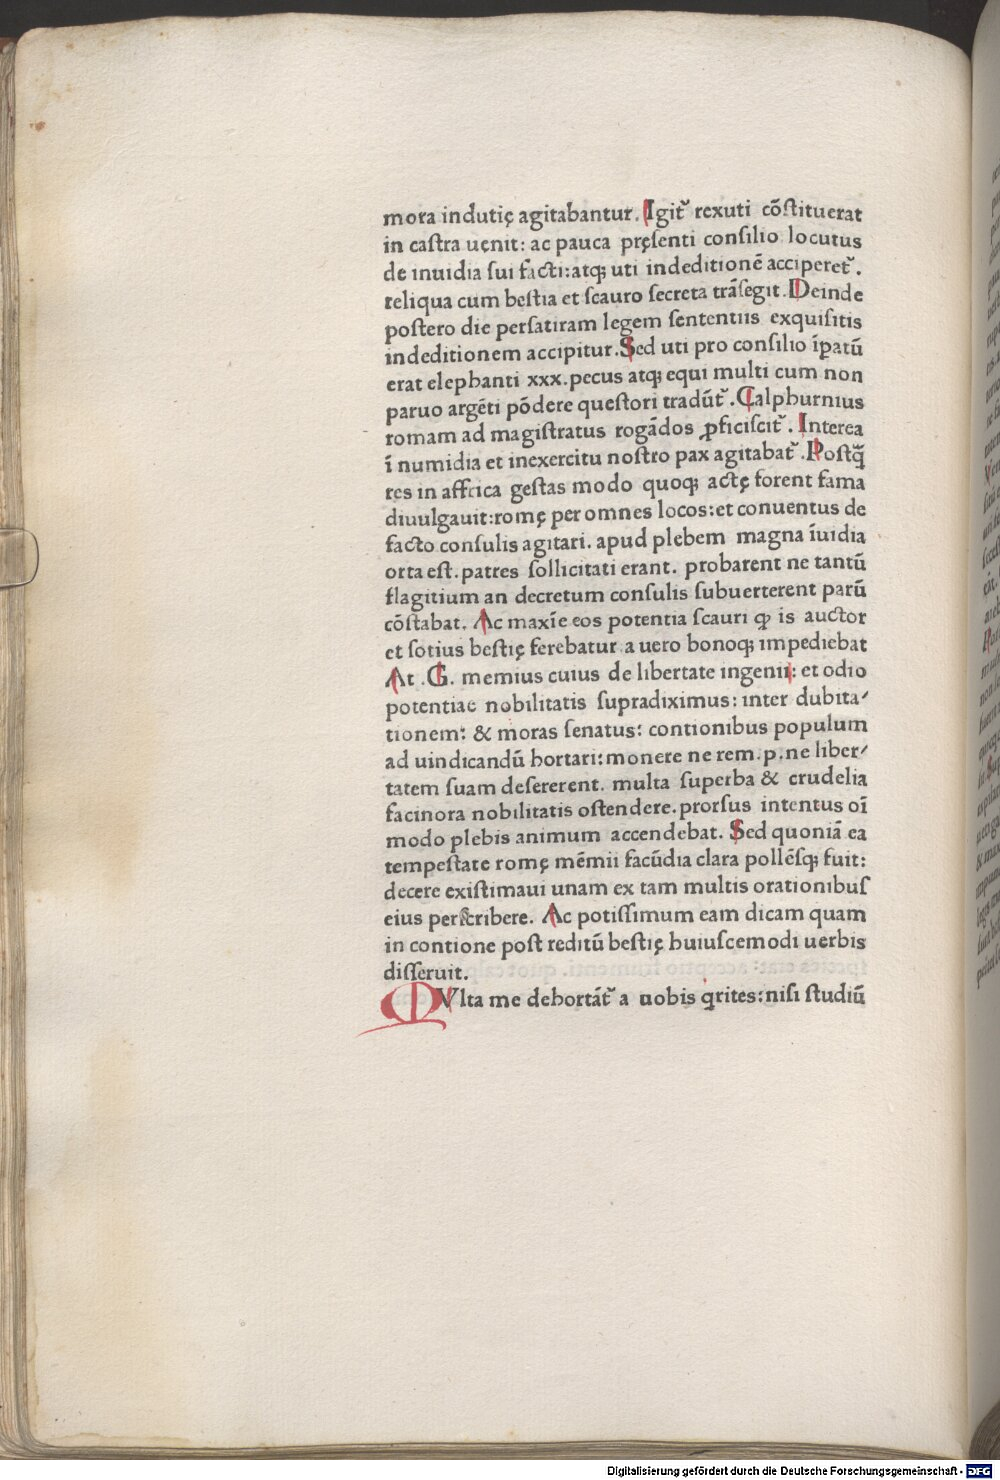 mora indutię agitabantur. Igit᷑ rexuti cōſtituerat
in caſtra uenit: ac pauca pręſenti conſilio locutus
de inuidia ſui facti:atq; uti indeditionē acciperet᷑.
reliqua cum beſtia et ſcauro ſecreta trāſegit. Deinde
poſtero die perſatiram legem ſententiis exquiſitis
indeditionem accipitur. Sed uti pro conſilio īꝑatū
erat elephanti xxx. pecus atq; equi multi cum non
paruo argēti pōdere queſtori tradūt᷑. Calphurnius
romam ad magiſtratus rogādos ꝓficiſcit᷑. Interea
ī numidia et inexercitu noſtro pax agitabat᷑. Poſtq̄
res in affrica geſtas modo quoq; actę forent fama
diuulgauit:romę per omnes locos:et conuentus de
facto conſulis agitari. apud plebem magna īuidia
orta eſt. patres ſollicitati erant. probarent ne tantū
flagitium an decretum conſulis ſubuerterent parū
cōſtabat. Ac maxīe eos potentia ſcauri ꝙ is auctor
et ſotius beſtię ferebatur a uero bonoq; impediebat
At .G. memius cuius de libertate ingenii: et odio
potentiae nobilitatis ſupradiximus: inter dubita⸗
tionem: & moras ſenatus: contionibus populum
ad uindicandū hortari: monere ne rem. p. ne liber⸗
tatem ſuam deſererent. multa ſuperba & crudelia
facinora nobilitatis oſtendere. prorſus intentus oī
modo plebis animum accendebat. Sed quoniā ea
tempeſtate romę mēmii facūdia clara pollēſq; fuit:
decere exiſtimaui unam ex tam multis orationibuſ
eius perſcribere. Ac potiſſimum eam dicam quam
in contione poſt reditū beſtię huiuſcemodi uerbis
diſſeruit.
MVlta me dehortāt᷑ a uobis qrites: niſi ſtudiū
Digitalisierung gefördert durch die Deutsche Forschungsgemeinschaft - DFG